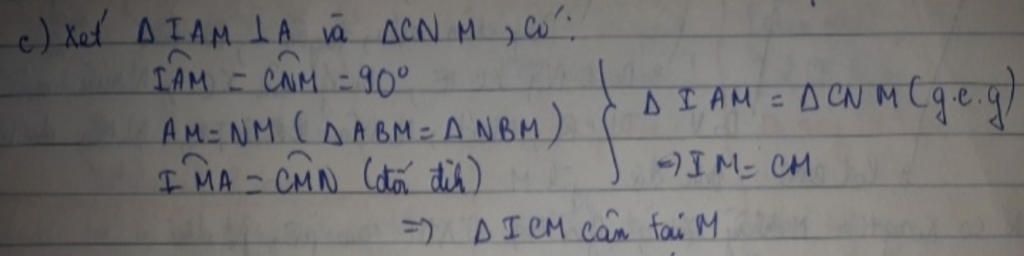 c) Xét Δ IAM ⊥ A và ΔCNM, có:
IAM = CNM = 90°
AM = NM (ΔABM = ΔNBM)
IMA = CMN (đối đỉnh)
} Δ IAM = Δ CNM (g.c.g)
=> IM = CM
=> Δ ICM cân tại M